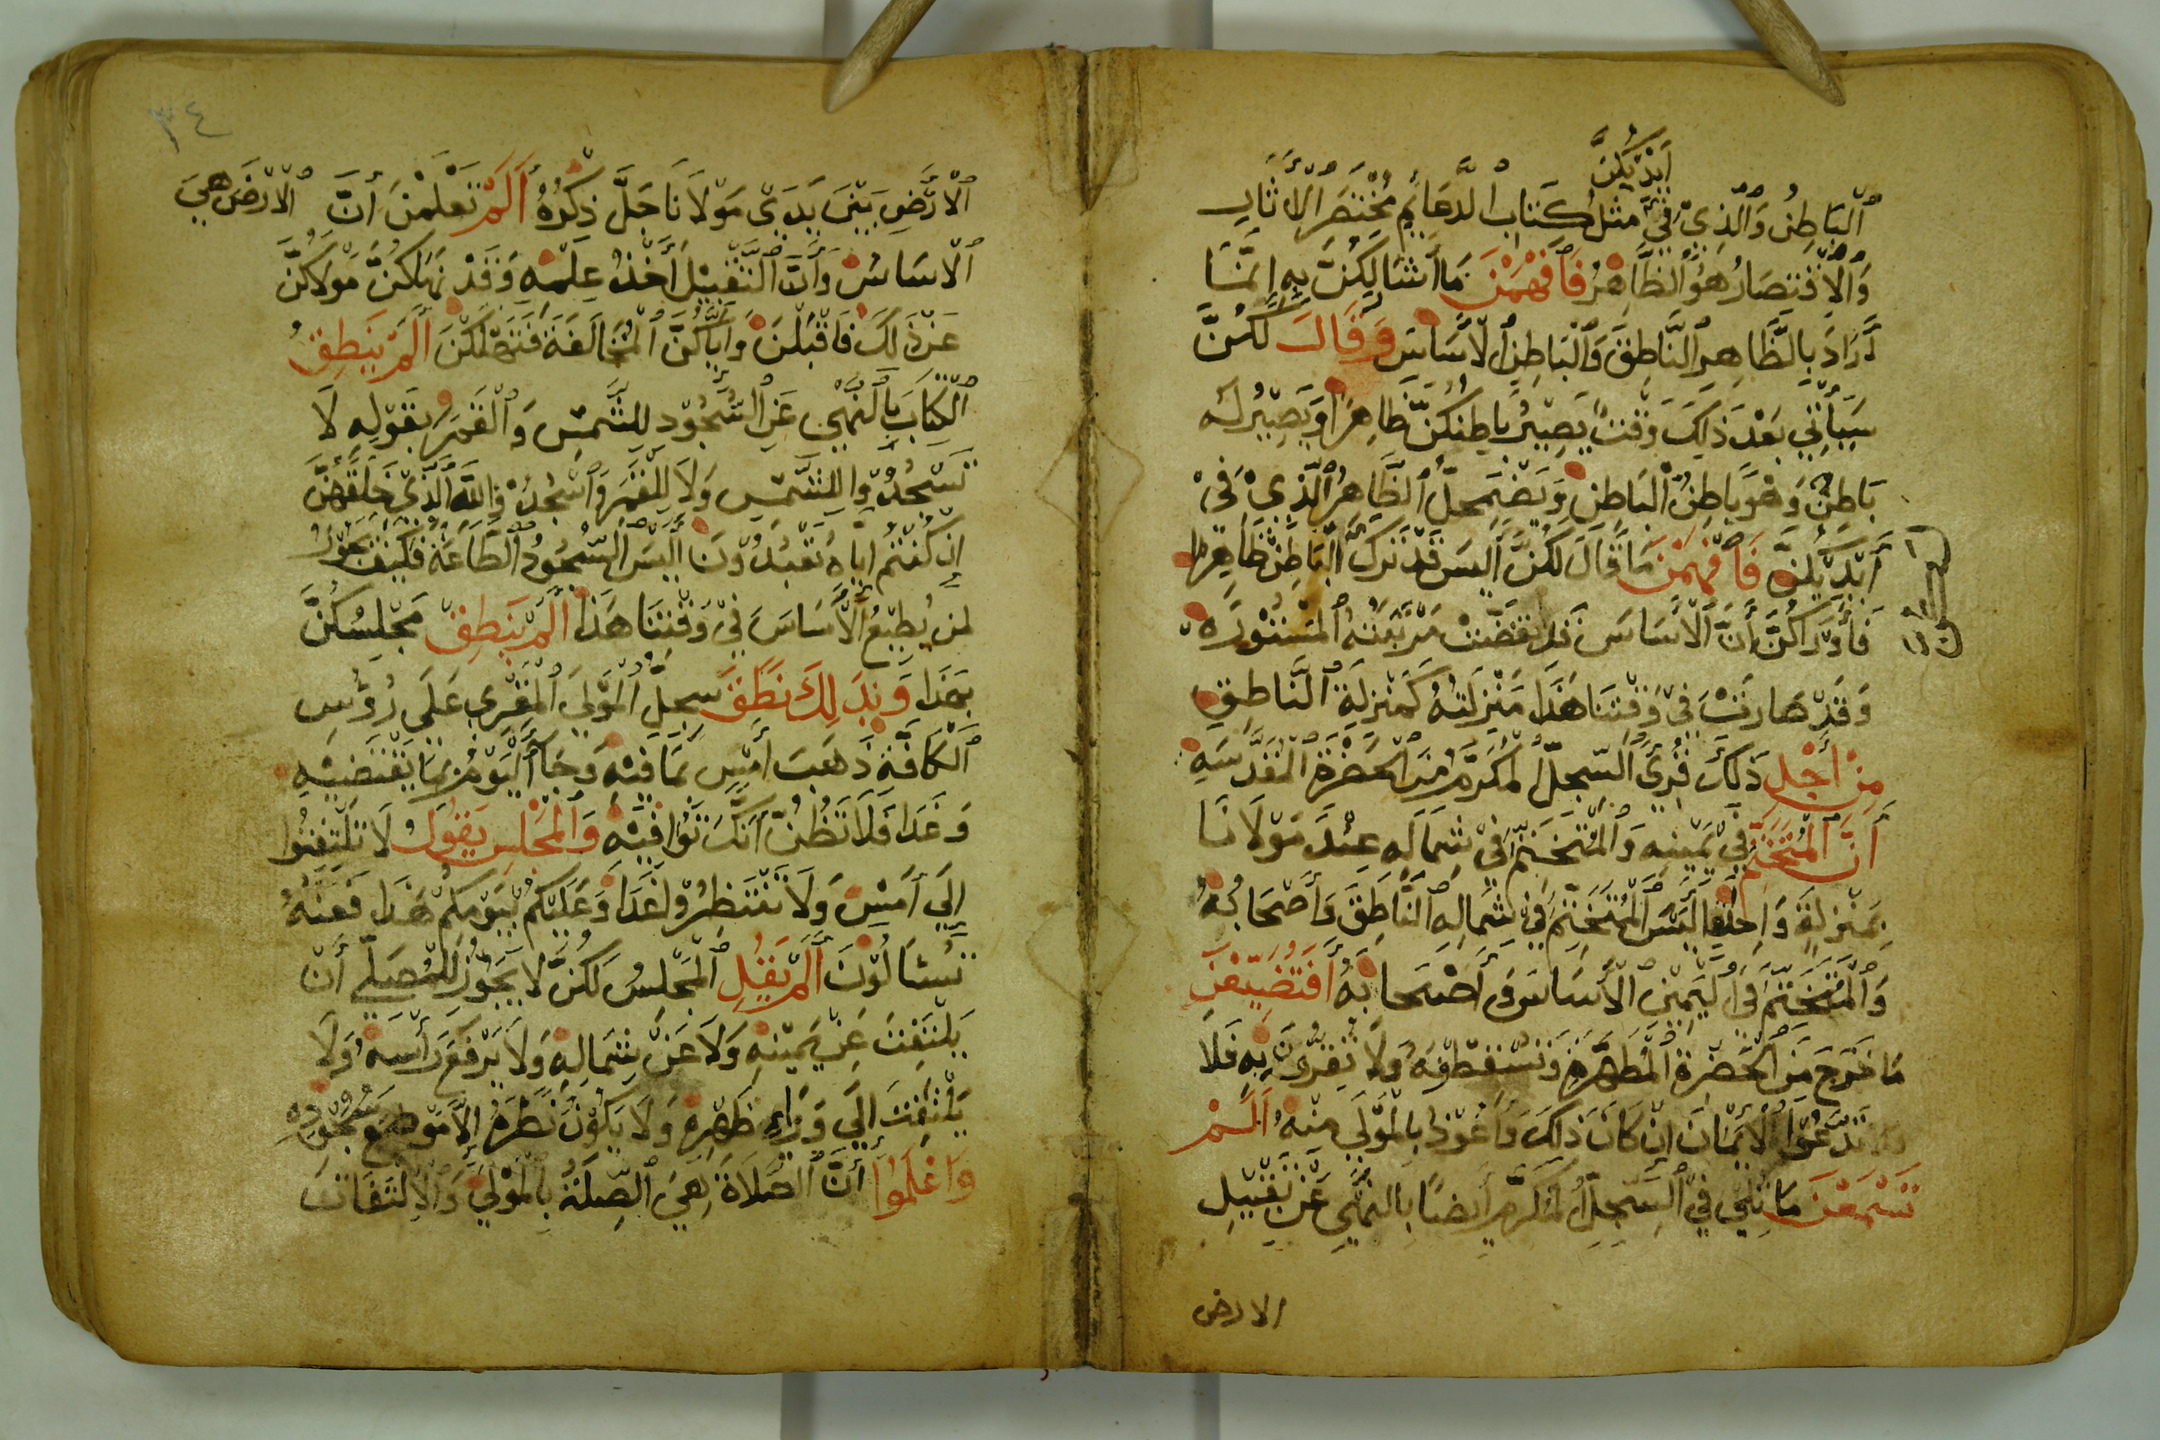 أَيْدِيكُنَّ
الْبَاطِنُ وَالَّذِي فِي مثل كتاب الدَّعَايِم مُخْتَصَر الْأَثَار
وَالْاِقْتِصَارُ هُوُ الظَّاهِرُ فَافْهَمْنَ مَا أَشَا لَكُنَّ بِهِ إِنَّمَا
أَرَادَ بِالظَّاهِرِ النَّاطِقَ وَالْبَاطِنِ الْأَسَاسَ وَقَالَ لَكُنَّ
سَيَأْتِي بَعْدَ ذَلِكَ وَقْتٌ يَصِيْرُ بَاطِنُكُنَّ ظَاهِرًا وَيَصِيْرُ لَهُ
بَاطِنٌ وَهُوَ بَاطِنُ الْبَاطِنِ وَيَضْمَحِلُّ الظَّاهِرُ الَّذِيْ فِيْ
أَيْدِيْكُنَّ فَافْهَمْنَ مَا قَالَ لَكُنَّ أَلَيْسَ قَدْ تَرَكَ الْبَاطِنَ ظَاهِرًا
فَأَوْرَاكُنَّ أَنَّ الْأَسَاسَ قَدِ انْقَضَتْ مَرْتَبَتُهُ الْمَسْتُوْرَه
وَقَدْ صَارَتْ فِي وَقْتِنَا هَذَا مَنْزِلَتُهُ كَمَنْزِلَةِ النَّاطِقِ
مِنْ أَجْلِ ذَلِكَ قُرِئَ السِّجِلُّ الْمُكَرَّمُ مِنَ الْحَضْرَةِ الْمُقَدَّسَةِ
أَنَّ الْمُتَخَتِّمَ فِيْ يَمِيْنِهِ وَالْمُتَخَتِّمَ فِيْ شِمَالِهِ عِنْدَ مَوْلَانَا
بِمَنْزِلَةٍ وَاحِدَةٍ أَلَيْسَ الْمُتَخَتِّمَ فِيْ شِمَالِهِ النَّاطِقَ وَأَصْحَابُهُ
وَالْمُتَخَتِّمَ فِي الْيَمِيْنِ الْأَسَاسَ وَأَصْحَابُهُ أَفَتُضَيِّعْنَ
مَا خَرَجَ مِنَ الْحَضْرَةِ الْمُطَهَّرَةِ وَتُسْقِطُوْهُ وَلَا تُقِرُّوْنَ بِهِ فَلَا
تَدَّعُوْا الْإِيْمَانَ إِنْ كَانَ ذَلِكَ وَأَعُوْذُ بِالْمَوْلَى مِنْهُ أَلَمْ
تَسْمَعْنَ مَا تُلِيَ فِي السِّجِلِّ الْمُكَرَّمِ أَيْضًا بِالنَّهْيِ عَنْ تَقْبِيْلِ
الارض
٣٤
الْأَرْضِ بَيْنَ يَدَيْ مَوْلَانَا جَلَّ ذِكْرُهُ أَلَمْ تَعْلَمْنَ أَنَّ الْأَرْضَ هِيَ
الْأَسَاسُ وَأَنَّ التَّقْبِيْلَ أَخْذُ عِلْمِهِ وَقَدْ نَهَاكُنَّ مَوْلَاكُنَّ
عَنْ ذَلِكَ فَاقْبَلْنَ وَإِيَّاكُنَّ الْمُخَالَفَةَ فَتَهْلَكْنَ أَلَمْ يَنْطِقِ
الْكِتَابُ بِالنَّهْيِ عَنِ السُّجُوْدِ لِلشَّمْسِ وَالْقَمَرِ بِقَوْلِهِ لَا
تَسْجُدُوْا لِلشَّمْسِ وَلَا لِلْقَمَرِ وَاسْجُدُوْا لِلَّهِ الَّذِيْ خَلَقَهُنَّ
إِنْ كُنْتُمْ إِيَّاهُ تَعْبُدُوْنَ أَلَيْسَ السُّجُوْدُ الطَّاعَةَ فَكَيْفَ يَجُوْزُ
لِمَنْ يُطِيْعُ الْأَسَاسَ فِيْ وَقْتِنَا هَذَا أَلَمْ يَنْطِقْ مَجْلِسُكُنَّ
بِهَذَا وَبِذَلِكَ نَطَقَ سِجِلُّ الْمَوْلَى الْمَقْرِي عَلَى رُؤُسِ
الْكَافَّةِ ذَهَبَ أَمْسِ بِمَا فِيْهِ وَجَاَ الْيَوْمُ بِمَا يَقْتَضِيْهِ
وَغَدًا فَلَا تَظُنُّ أَنَّكَ تُوَافِيْهِ وَالْمَجْلِسِ يَقُوْلُ لَا تَلْتَفِتُوا
إِلَى أَمْسِ وَلَا تَنْتَظِرُوْا غَدًا وَعَلَيْكُمْ بِيَوْمِكُمْ هَذَا فَعَنْهُ
تُسْئَالُوْنَ أَلَمْ يَقُلِ الْمَجْلِسُ لَكُنَّ لَا يَجُوْزُ لِلْمُصَلِّي أَنْ
يَلْتَفِتَ عَنْ يَمِيْنِهِ وَلَا عَنْ شِمَالِهِ وَلَا يَرْفَعَ رَأْسَهُ وَلَا
يَلْتَفِتَ إِلَى وَرَاءِ ظَهْرِهِ وَلَا يَكُوْنَ نَظَرُهُ إِلَّا مَوْضِعَ سُجُوْدِهِ
وَاعْلَمُوْا أَنَّ الصَّلَاةَ هِيَ الصِّلَةُ بِالْمَوْلَى وَالْاِلْتِفَاتَ